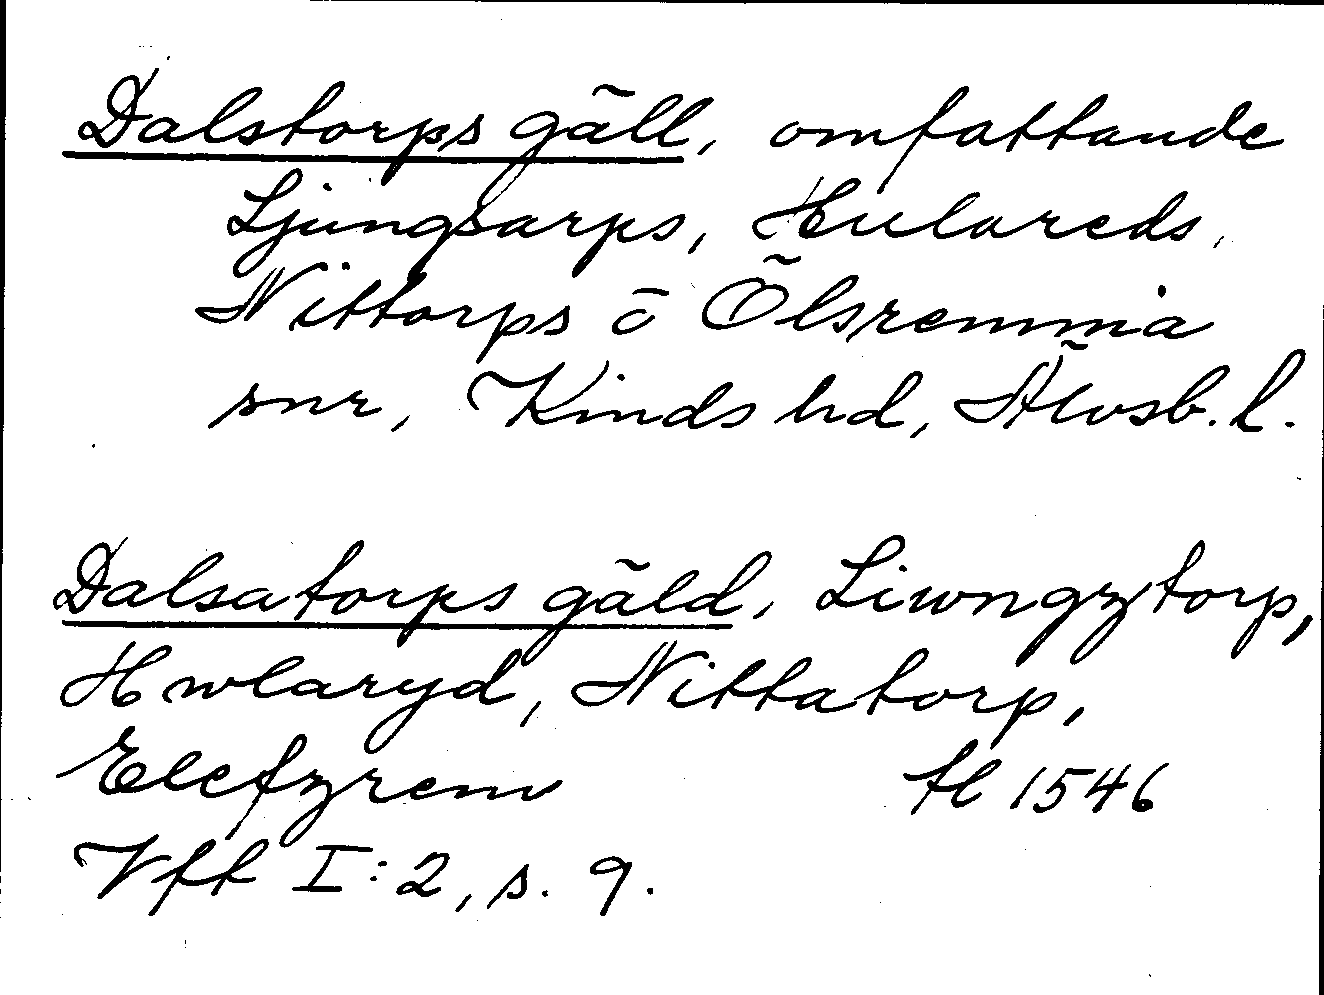 Dalstorps gäll, omfattande
Ljungsarps, Hulareds,
Nittorps o Ölsremma
snr, Kinds hd, Älvsb. l.
Dalsatorps gäld, Liwngztorp,
Hwlaryd, Nittatorp,
Elefzrem tl 1546
Vfft I:2, s. 9.